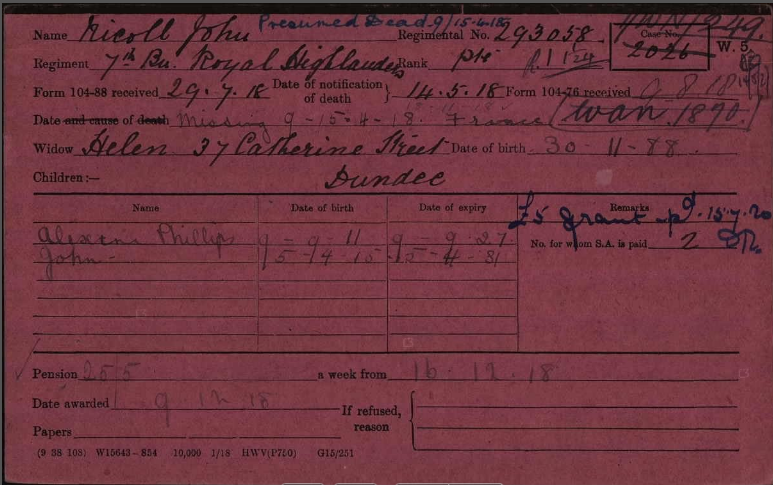 Name Nicoll John Presumed Dead 9/15-4-18 Regimental No. 293058 Case No. 2026 W. 5.
Regiment 7th Bn. Royal Highlanders Rank Pte
Form 104-88 received 29.7.18 Date of notification of death } 14.5.18 Form 104-76 received 9 8 18
Date and cause of death Missing 9-15-4-18. France
Widow Helen 37 Catherine Street Date of birth 30-11-88.
Children:— Dundee
Name Date of birth Date of expiry Remarks
£5 grant pd. 15.7.20
Phillips 9-9-11 9-9-27
No. for whom S.A. is paid 2
John - 15-4-15 15-4-31
Pension 25/5 a week from 16.12.18
Date awarded 9 12 18
If refused, reason {
Papers
(9 38 108) W15643—854 10,000 1/18 HWV(P750) G15/251